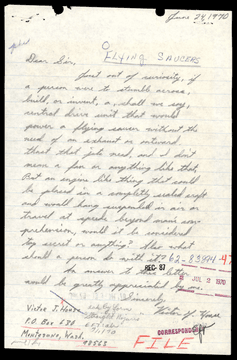 June 24, 1970
FLYING SAUCERS
Dear Sir,
Just out of curiosity, if
a person were to stumble across,
build, or invent, a, shall we say,
central drive unit that would
power a flying saucer without the
need of an exhaust or outward
thrust that jets need, and I don't
mean a fan or anything like that,
But an engine like thing that could
be placed in a completely sealed craft
and would hang suspended in air or
travel at speeds beyond man's com-
prehension, would it be considered
top secret or anything? Also what
should a person do with it? 62-83994-47
REC-87
An answer to this letter
JUL 2 1970
would be greatly appreciated by me.
Sincerely,
Victor J. House
Victor J. House
P.O. Box
Montesano, Wash.
98563
CORRESPONDENCE
FILE